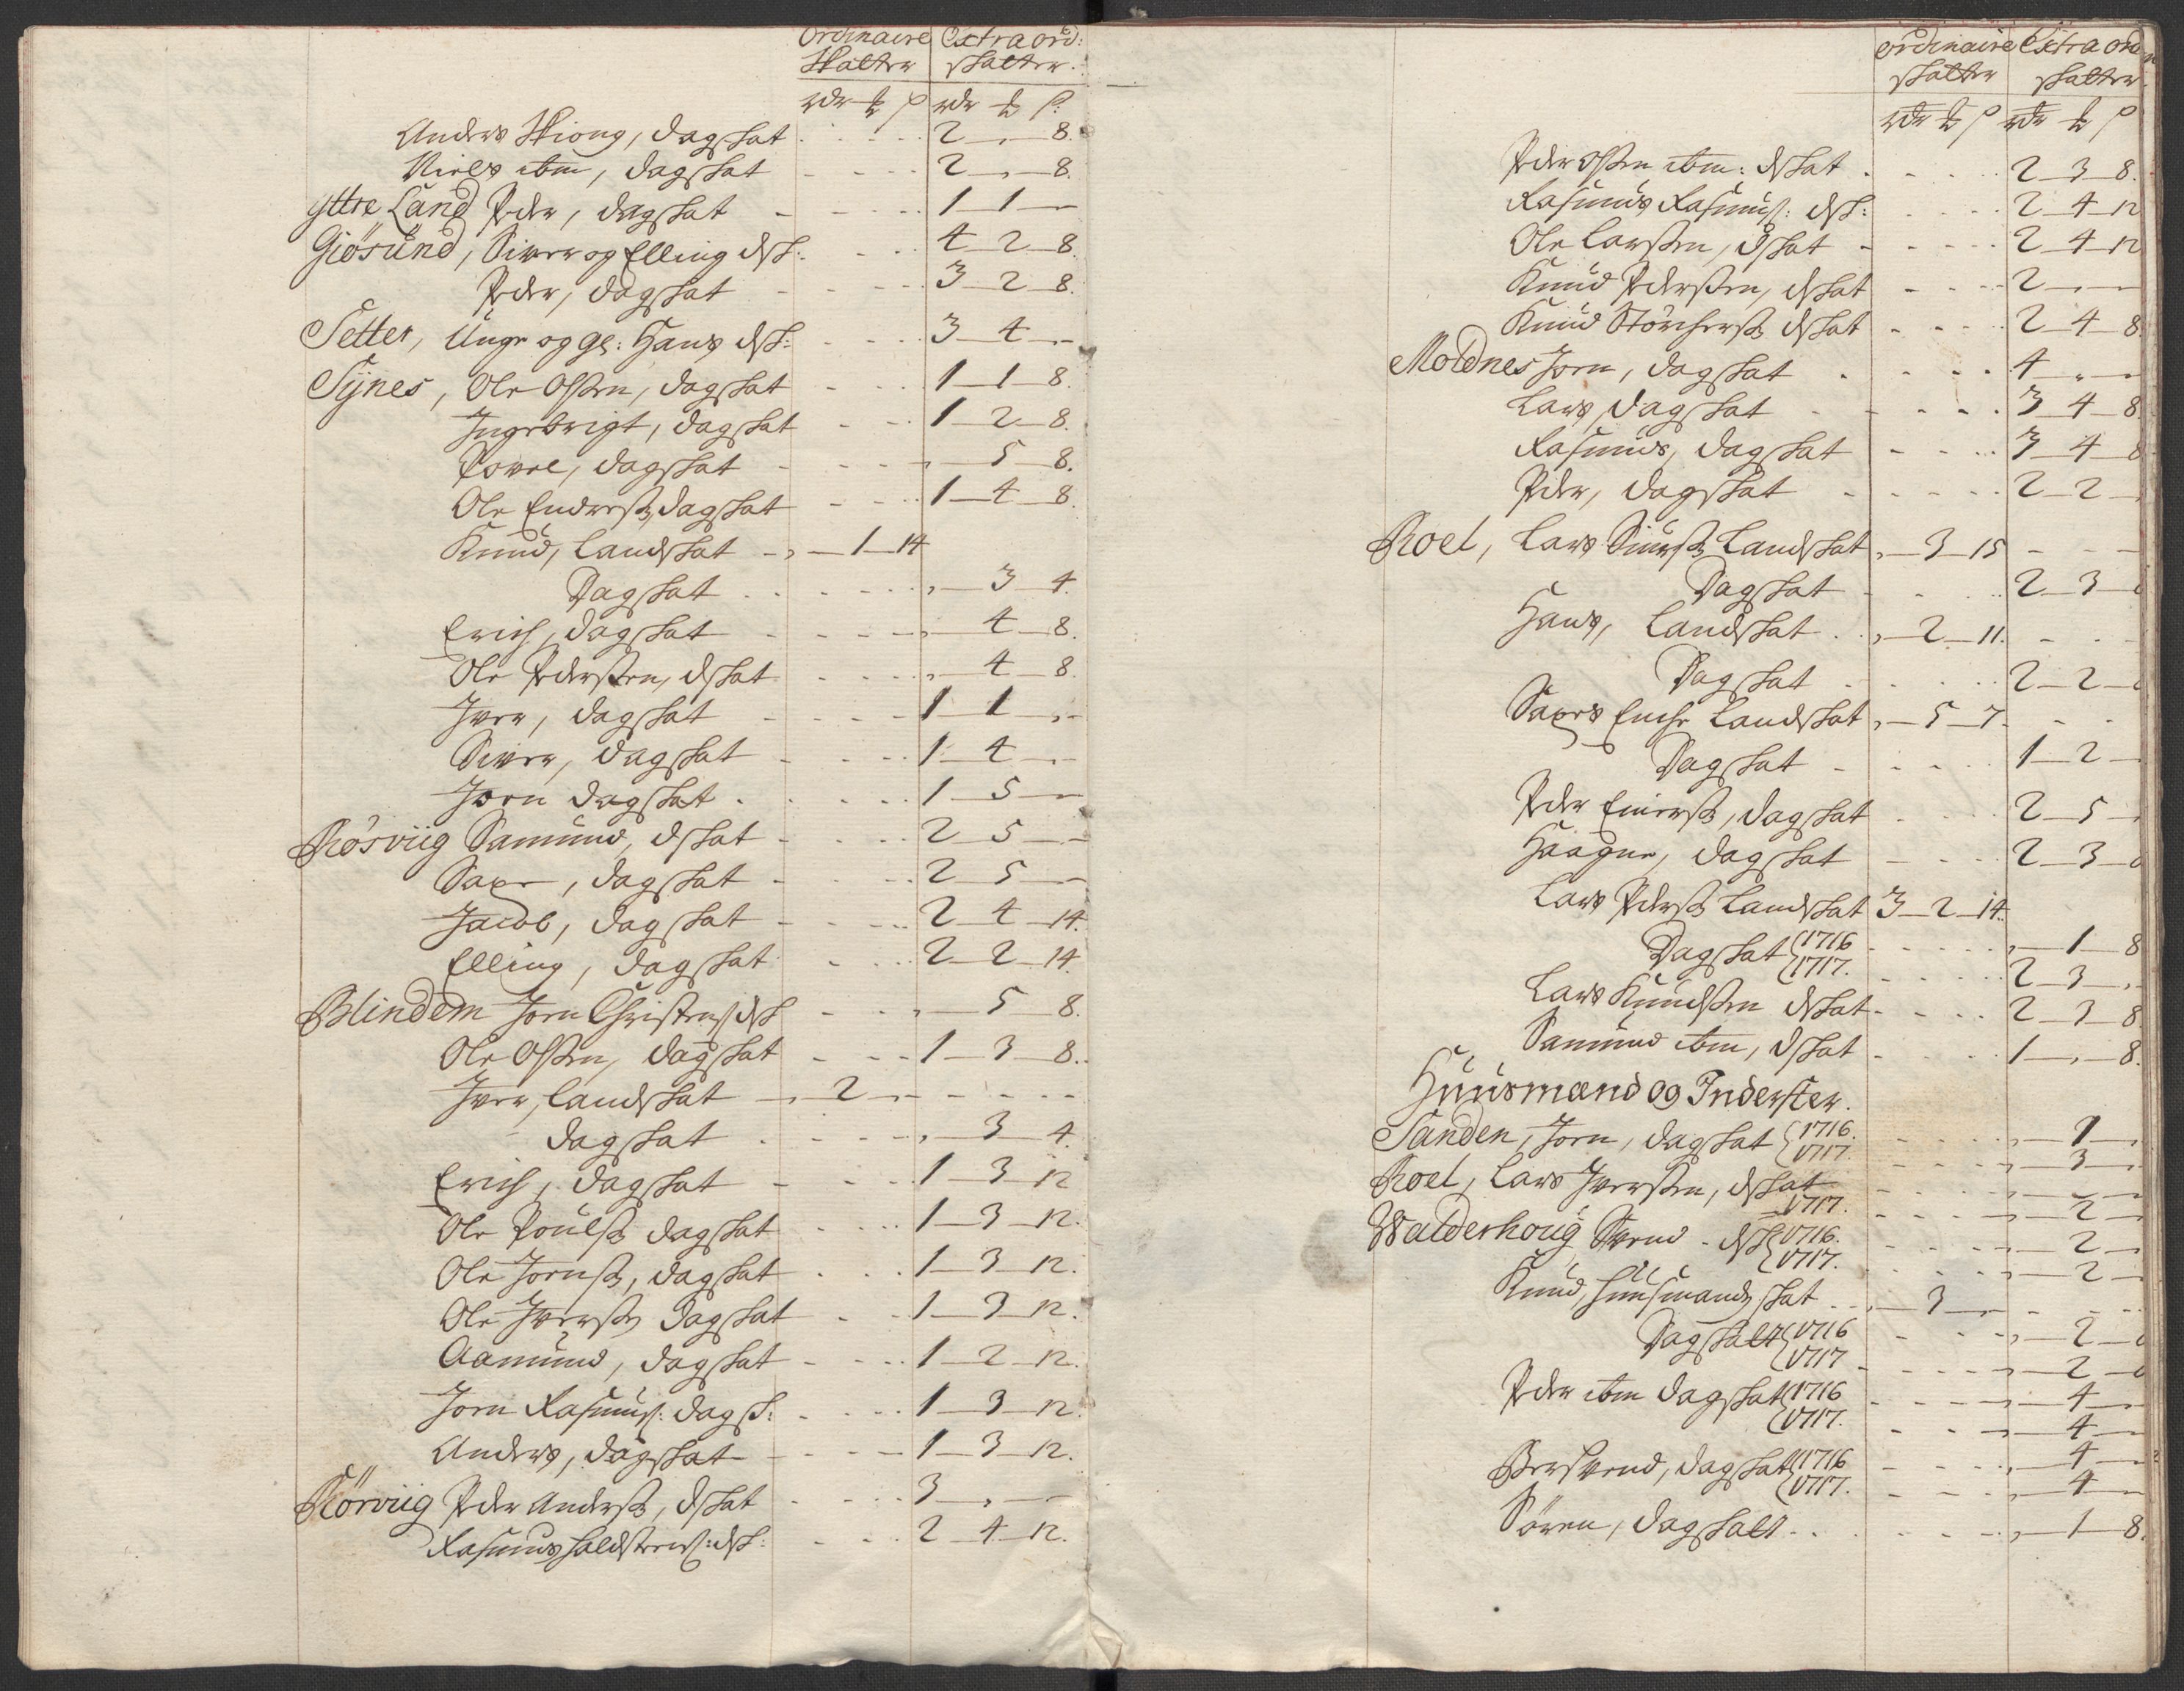 Ordinaire Extraord:
Skatter skatter.
rdr ß rdr ß:
Anders Skiong, dagskat 2 " 8.
Niels ibm, dagskat 2 " 8.
yttre Land Peder, dagskat 1 1 "
Giøsund, Siver og Elling dsk: 4 2 8.
Peder, dagskat 3 2 8.
Setter, Unge og gl: Hans dsk: 3 4 "
Synes, Ole Olsen, dagskat 1 1 8.
Ingebrigt, dagskat 1 2 8.
Povel, dagskat " 5 8.
Ole Enders, dagskat 1 4 8.
Knud, Landskat " 1 14
Dagskat " 3 4.
Erich, dagskat " 4 8.
Ole Pedersen, dskat " 4 8.
Iver, dagskat 1 1 "
Siver, dagskat 1 4 "
Jorn dagskat 1 5 "
Røsviig Samund, dskat 2 5 "
Saxe, dagskat 2 5 "
Jacob, dagskat 2 4 14.
Elling, dagskat 2 2 14.
Blindem Jorn Christens: dsk " 5 8.
Ole Olsen, dagskat 1 3 8.
Iver, Landskat " 2 "
dagskat " 3 4.
Erich, dagskat 1 3 12
Ole Pouls: dagskat 1 3 12.
Ole Jorns:, dagskat 1 3 12.
Ole Ivers: dagskat 1 3 12.
Aamund, dagskat 1 2 12.
Jorn Rasmus: dagsk: 1 3 12.
Anders, dagskat 1 3 12.
Rørviig Peder Anders:, dskat 3 " "
Rasmus Haldstens: dsk: 2 4 12.
ordinaire Extraord
skatter skatter
rdr ß rdr ß
Peder Olsen ibm: dskat 2 3 8.
Rasmus Rasmus: dsk: 2 4 12
Ole Larsen, dskat 2 4 12
Knud Pedersen, dskat 2 " "
Knud Storchers: dskat 2 4 8
Moldnes Jorn, dagskat 4 " "
Lars, dagskat 3 4 8
Rasmus, dagskat 3 4 8
Peder, dagskat 2 2
Roel, Lars Siurs: Landskat " 3 15
Dagskat 2 3
Hans, Landskat " 2 11.
Dagskat 2 2
Saxes Enche Landskat " 5 7
Dagskat 1 2
Peder Einers:, dagskat 2 5
Haagne, dagskat 2 3
Lars Peders: Landskat 3 2 14.
Dagskat {1716 " 1 8
{1717. 2 3 "
Lars Knudsen dskat 2 3 8
Samund ibm, dskat 1 " 8.
Huusmænd og Inderster.
Sanden, Jorn, dagskat {1716. " 1
{1717. " 3
Roel, Lars Iversen, dskat
1717. " 2
Walderhoug Svend dsk {1716. " 2
{1717. " 2
Knud, Huusmandskat " 3 "
Dagskatt {1716 " 2
{1717 " 2
Peder ibm dagskat {1716 " 4
{1717. " 4
Bersvend, dagskat {1716 " 4
{1717. " 4
Søren, dagskatt " 1 8.